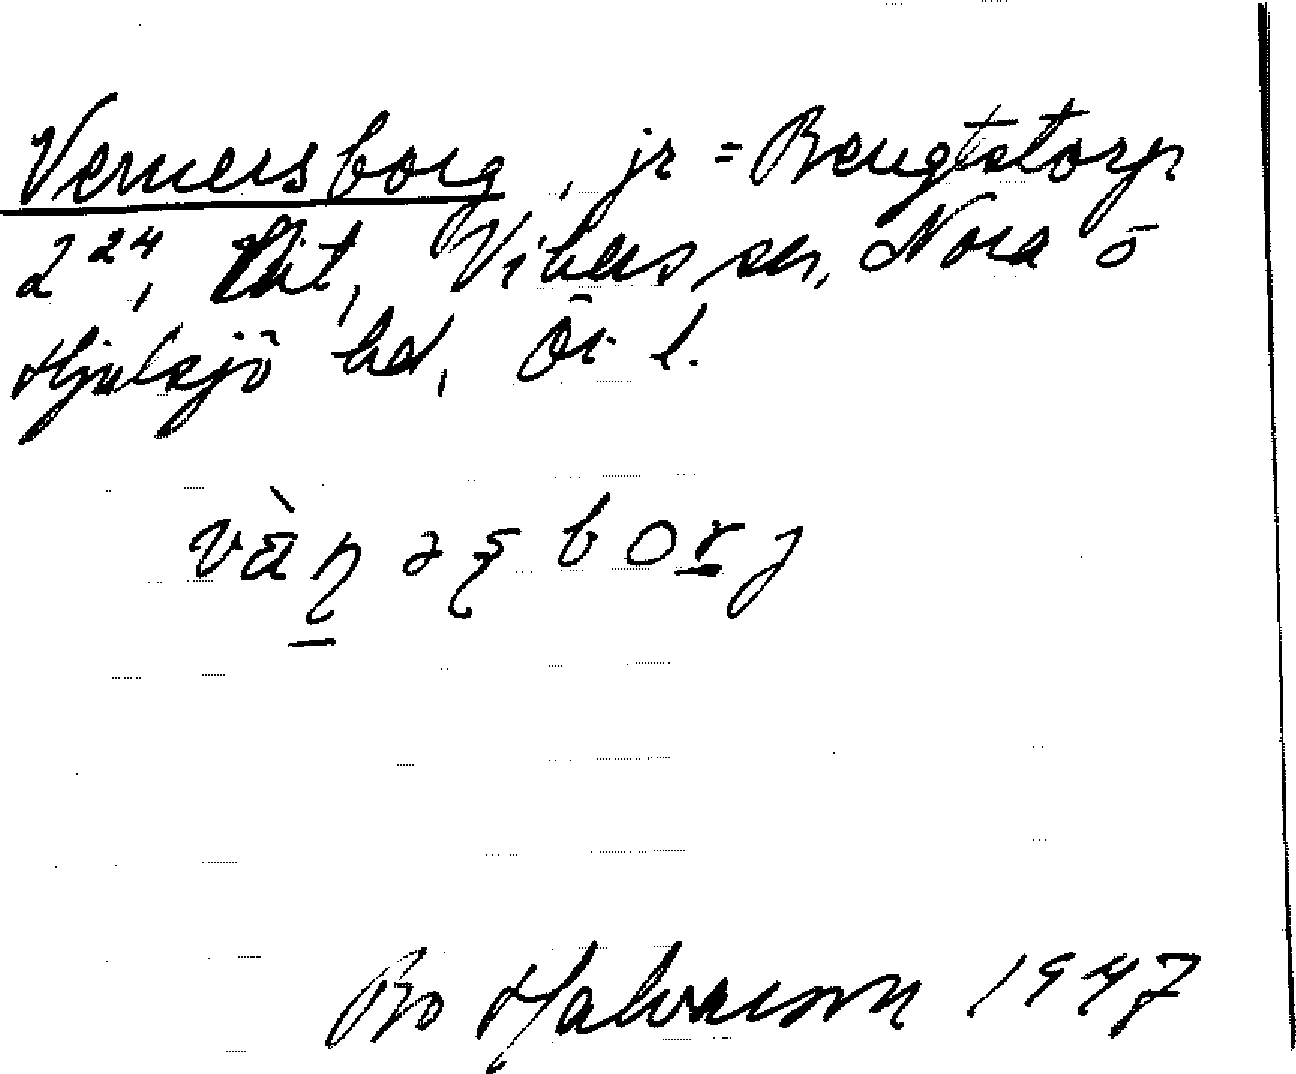 Vernersborg, jr = Bengtstorp
2²⁴, Vikers sn, Nora o
Hjulsjö hd, Ör. l.
và̄ṇəʂborj
Bo Halvarson 1947